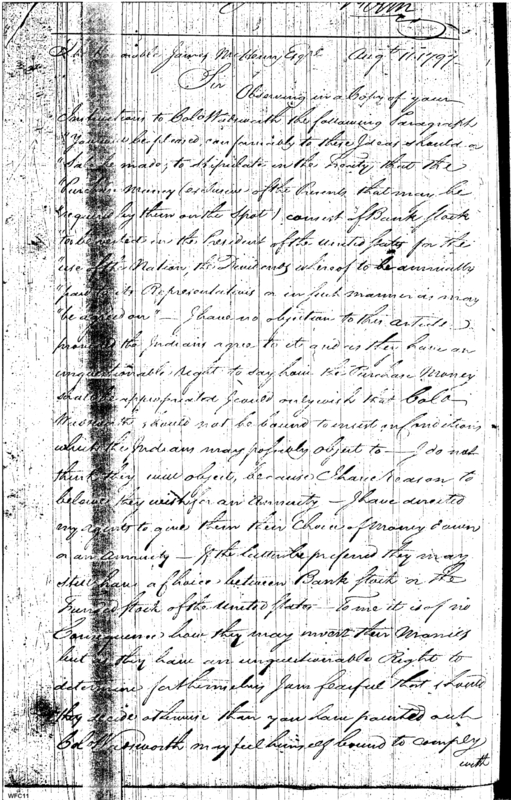 The Honble James McHenry Esqre Augt 11. 1797
Sir
Observing in a Copy of your
Instructions to Colo Wadsworth the following Paragraph
"You will be pleased conformably to these Ideas should a
"Sale be made; to stipulate in the Treaty that the
"Purchase Money (exclusive of the Presents that may be
"required by them on the Spot) consist of Bank Stock
to be vested in the President of the United States for the
"use of the Nation, the Dividends whereof to be annually
"paid to its Representatives or in such manner as may
"be agreed on" — I have no objection to this article
provided the Indians agree to it and as they have an
unquestionable right to say how the Purchase Money
should be appropriated I could only wish that Colo
Wadsworth should not be bound to insist on Conditions
which the Indians may possibly object to — I do not
think they will object, because I have Reason to
believe they wish for an Annuity — I have directed
my Agents to give them their Choice of Money down
or an annuity — If the latter be preferred they may
still have a Choice between Bank Stock or the
Funded Stock of the United States — To me it is of no
Consequence how they may invest their Monies
but as they have an unquestionable Right to
determine for themselves I am fearful that should
they decide otherwise than you have pointed out
Colo Wadsworth may feel himself bound to comply
with
WFC11